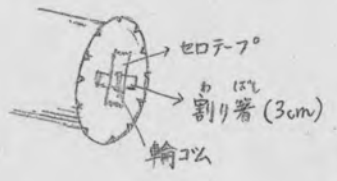 セロテープ
わ ばし
割り箸(3cm)
輪ゴム